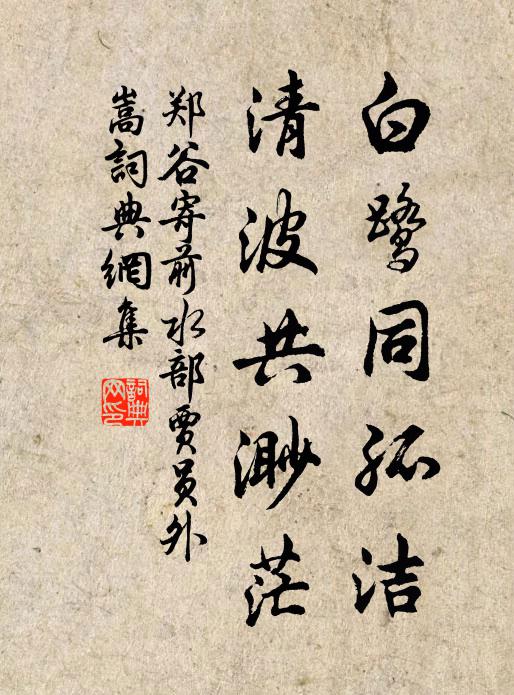 白鹭同孤洁
清波共渺茫
郑谷寄前水部贾员外
嵩詞典網集
詞典网印